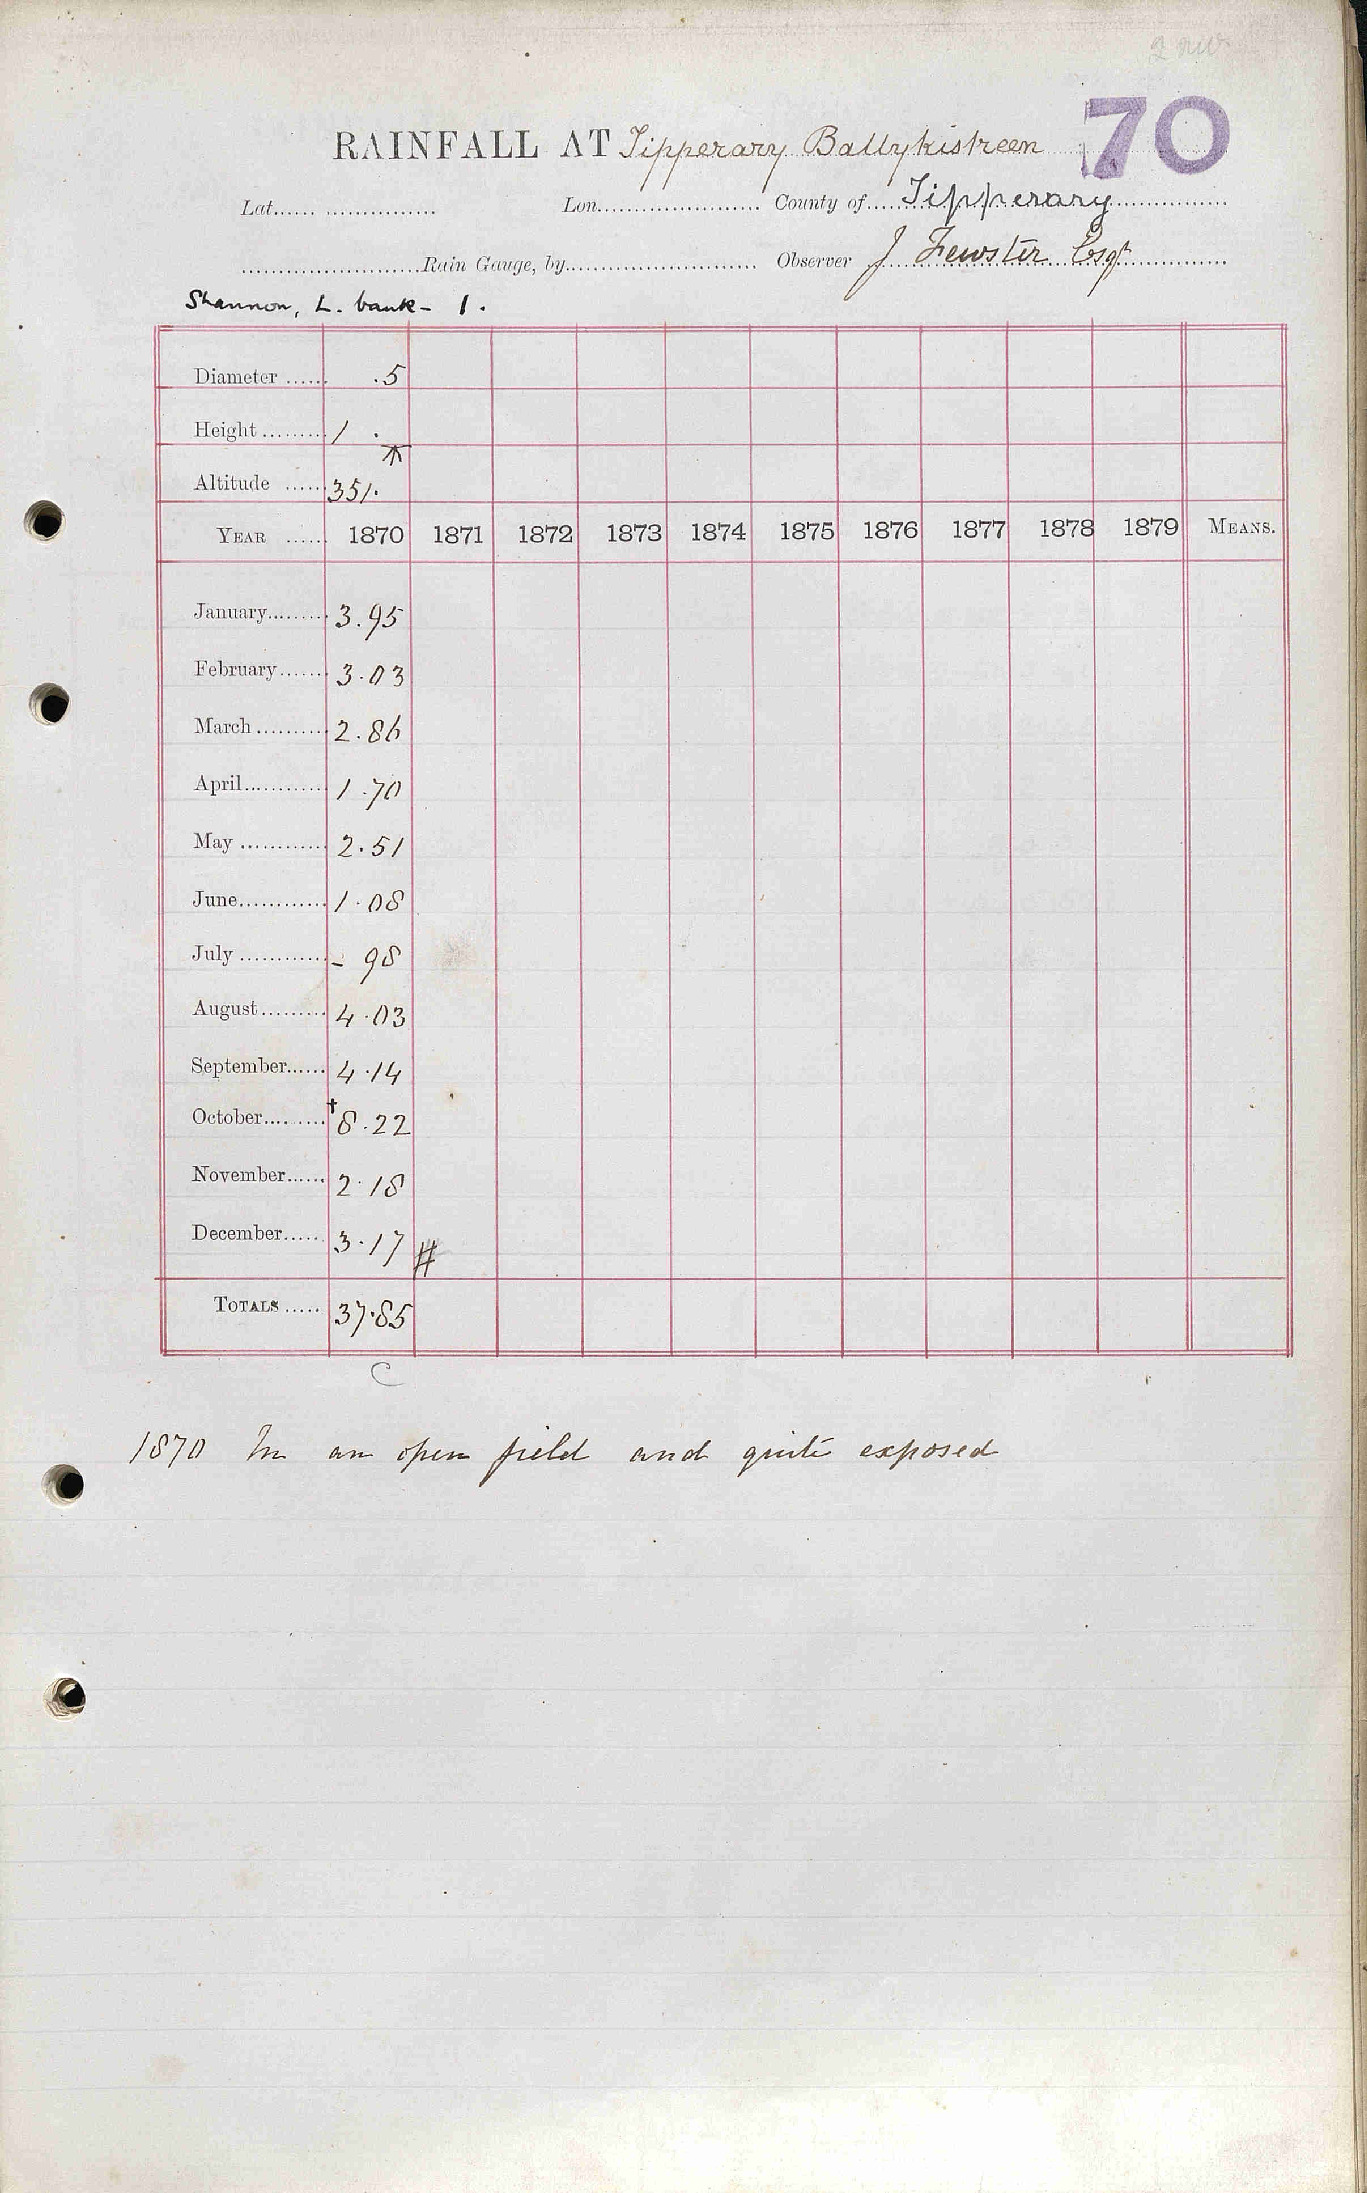 70
RAINFALL AT Tipperary Ballykistreen
Lat. Lon. County of Tipperary
Rain Gauge, by Observer J Fewster Esqr
Shannon, L. bank - 1.
Diameter .5
Height 1 .
Altitude 351.
YEAR 1870 1871 1872 1873 1874 1875 1876 1877 1878 1879 MEANS.
January 3.95
February 3.03
March 2.86
April 1.70
May 2.51
June 1.08
July - 98
August 4.03
September 4.14
October †8.22
November 2.18
December 3.17 #
TOTALS 37.85
C
1870 In an open field and quite exposed